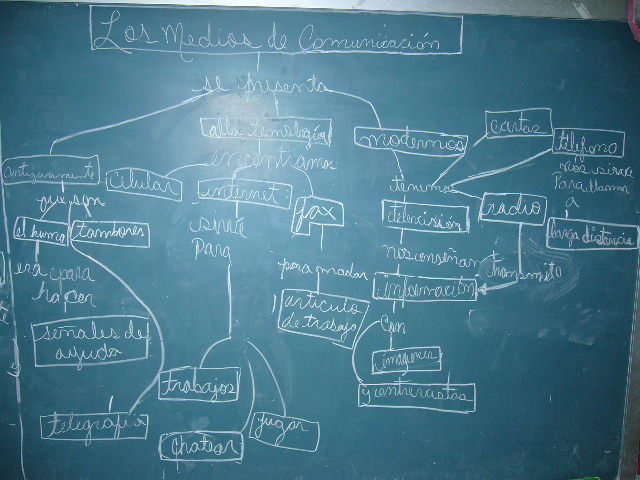 Los Medios de Comunicación
se presenta
alta tecnología
modernos
cartas
teléfono
antiguamente
celular
encontramos
internet
fax
tenemos
nos sirve
Para llamar
a
larga distancia
que son
el humo
tambores
sirve
Para
televisión
radio
era para
hacer
señales de
ayuda
para mandar
artículo
de trabajo
nos enseñan
transmito
información
con
imagenes
y entrevistas
trabajos
telegrafía
chatear
jugar